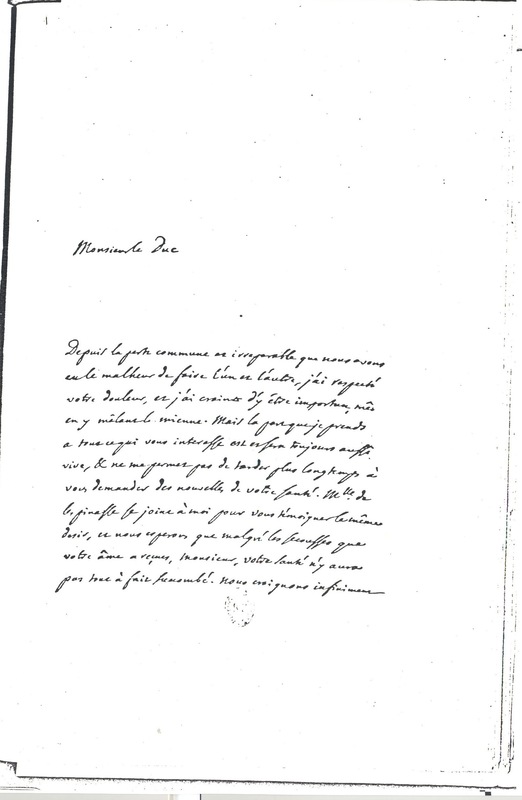 Monsieur le Duc
Depuis la perte commune et irreparable que nous avons
eu le malheur de faire l'un et l'autre, j'ai respecté
votre douleur, et j'ai craint d'y être importun, mê
en y mêlant la mienne. Mais la part que je prends
a tout ce qui vous interesse est et sera toujours aussi
vive, & ne me permet pas de tarder plus longtemps à
vous demander des nouvelles de votre santé. Mlle de
lespinasse se joint à moi pour vous témoigner le même
desir, et nous esperons que malgré les secousses que
votre âme a reçues, monsieur, votre santé n'y aura
pas tout à fait succombé. nous craignons infiniment